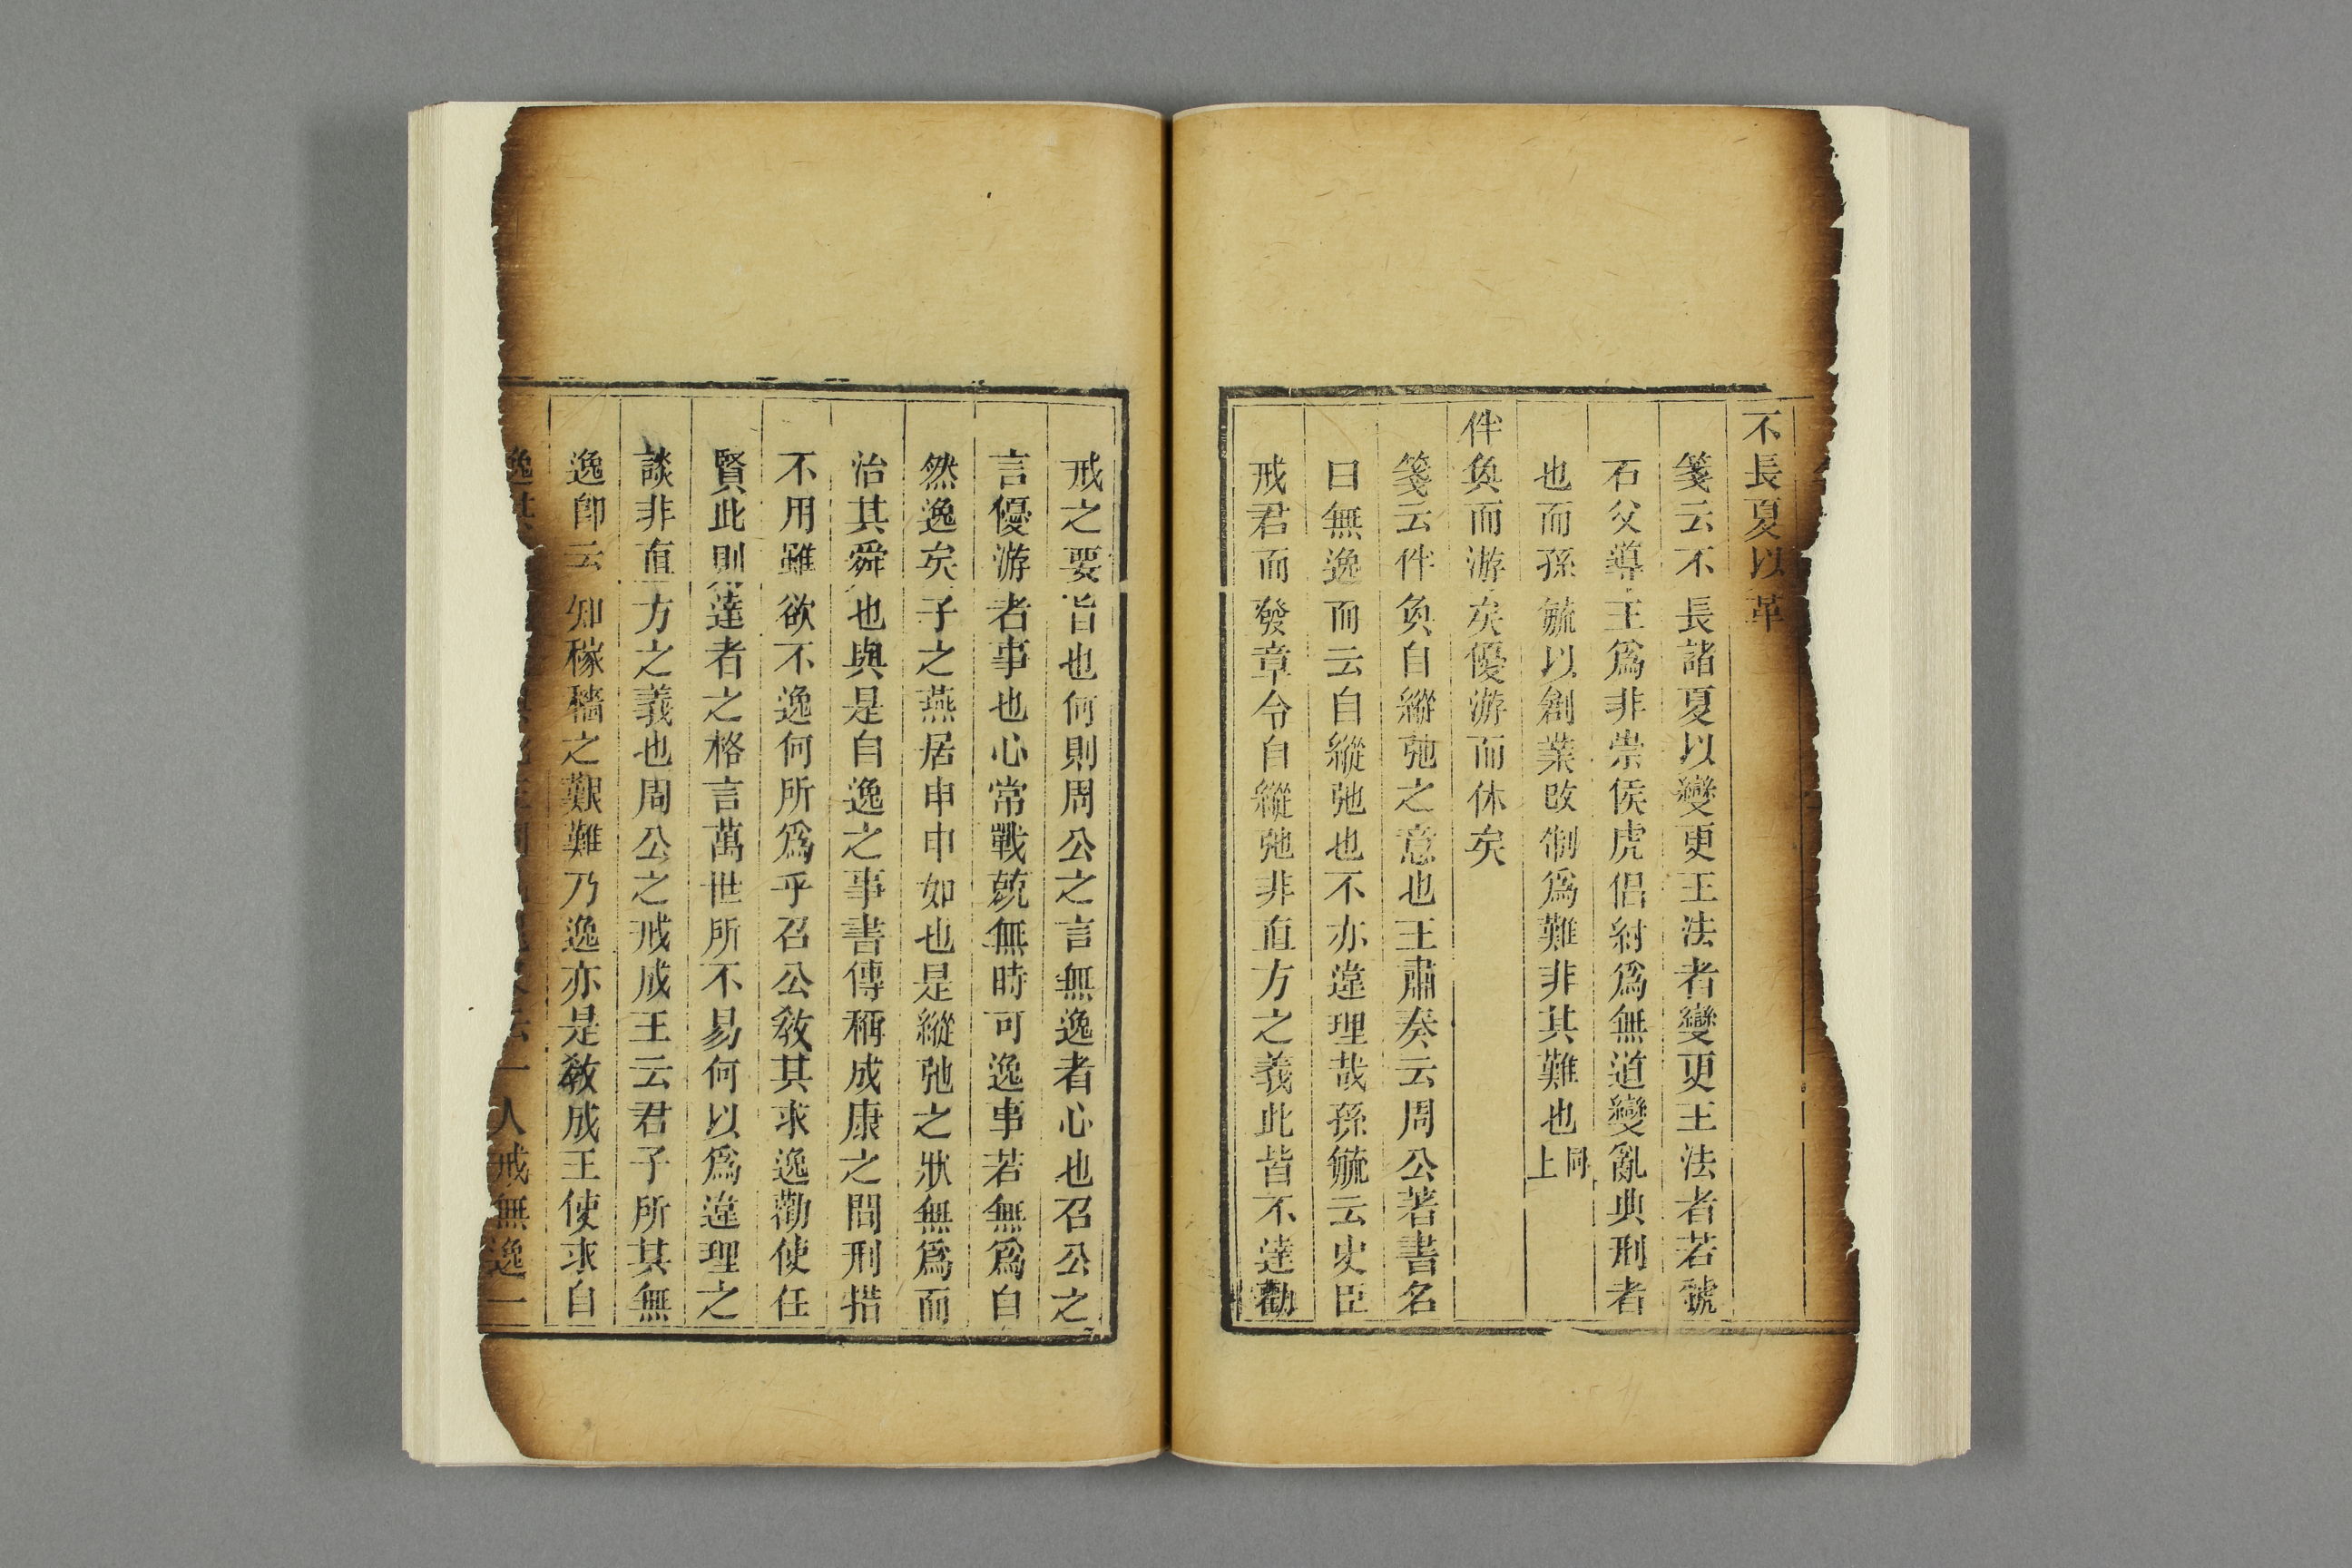 不長夏以革
箋云不長諸夏以變更王法者變更王法者若虢
石父導王爲非崇侯虎倡紂爲無道變亂典刑者
也而孫毓以創業改制爲難非其難也同上
伴奐而游矣優游而休矣
箋云伴奐自縱弛之意也王肅奏云周公著書名
曰無逸而云自縱弛也不亦違理哉孫毓云史臣
戒君而發章令自縱弛非直方之義此皆不達勸
戒之要旨也何則周公之言無逸者心也召公之
言優游者事也心常戰兢無時可逸事若無爲自
然逸矣子之燕居申申如也是縱弛之狀無爲而
治其舜也與是自逸之事書傳稱成康之間刑措
不用雖欲不逸何所爲乎召公敎其求逸勸使任
賢此則達者之格言萬世所不易何以爲違理之
談非直方之義也周公之戒成王云君子所其無
逸卽云知稼穡之艱難乃逸亦是敎成王使求自
逸其云一人戒無逸一